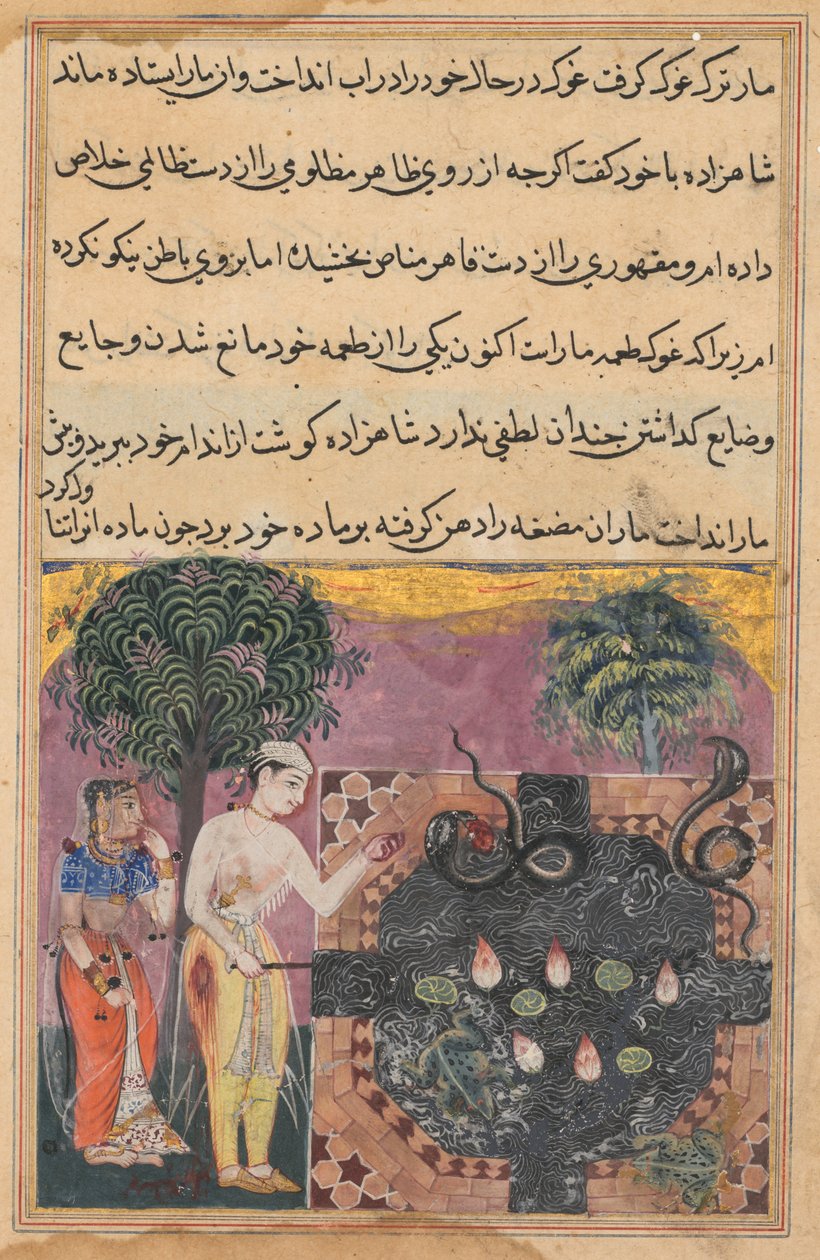 مار ترک غوک گرفت غوک در حال خود را در اب انداخت و ان مار ایستاده ماند
شاهزاده با خود کفت اکرجه از روي ظاهر مظلومي را از دست ظالمي خلاص
داده ام و مقهوري را از دست قاهر مناص بخشیده اما بروي باطن نیکو نکرده
ام زیراکه غوک طعمه مار است اکنون یکي را از طعمه خود مانع شدن و جایع
و ضایع کداشتن جندان لطفي ندارد شاهزاده کوشت از اندام خود ببرید و پیش
مار انداخت مار ان مضغه را در دهن کرفته بر ماده خود برد جون ماده انرا تنا
ول کرد